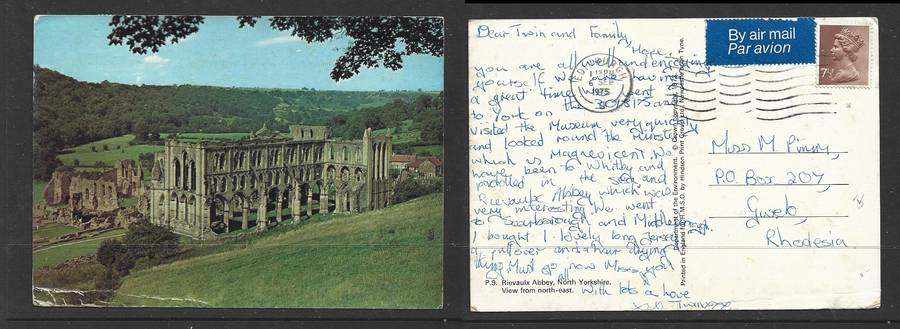 Dear Twin and Family,
Hope
you are all
yourself We are having
a great time. We went
to York on the 30/8/75 and
visited the Museum very quickly
and looked round the Minster
which is Magneficent. We
have been to Whitby and
paddled in the sea and
Rievaulx Abbey which was
very interesting. We went
to Scarborough and Middlesbrough.
I bought 1 lovely long jersey
a pullover and a hair drying
thing. Must go now. Miss you
With lots a love
xxx Twin
P.9. Rievaulx Abbey, North Yorkshire.
View from north-east.
Department of the Environment. © Crown copyright
Printed in England for H.M.S.O. by Hindson Print Group Ltd., Newcastle upon Tyne.
1975
By air mail
Par avion
7½p
Miss M Pinny,
P.O. Box 207,
Gwelo
Rhodesia